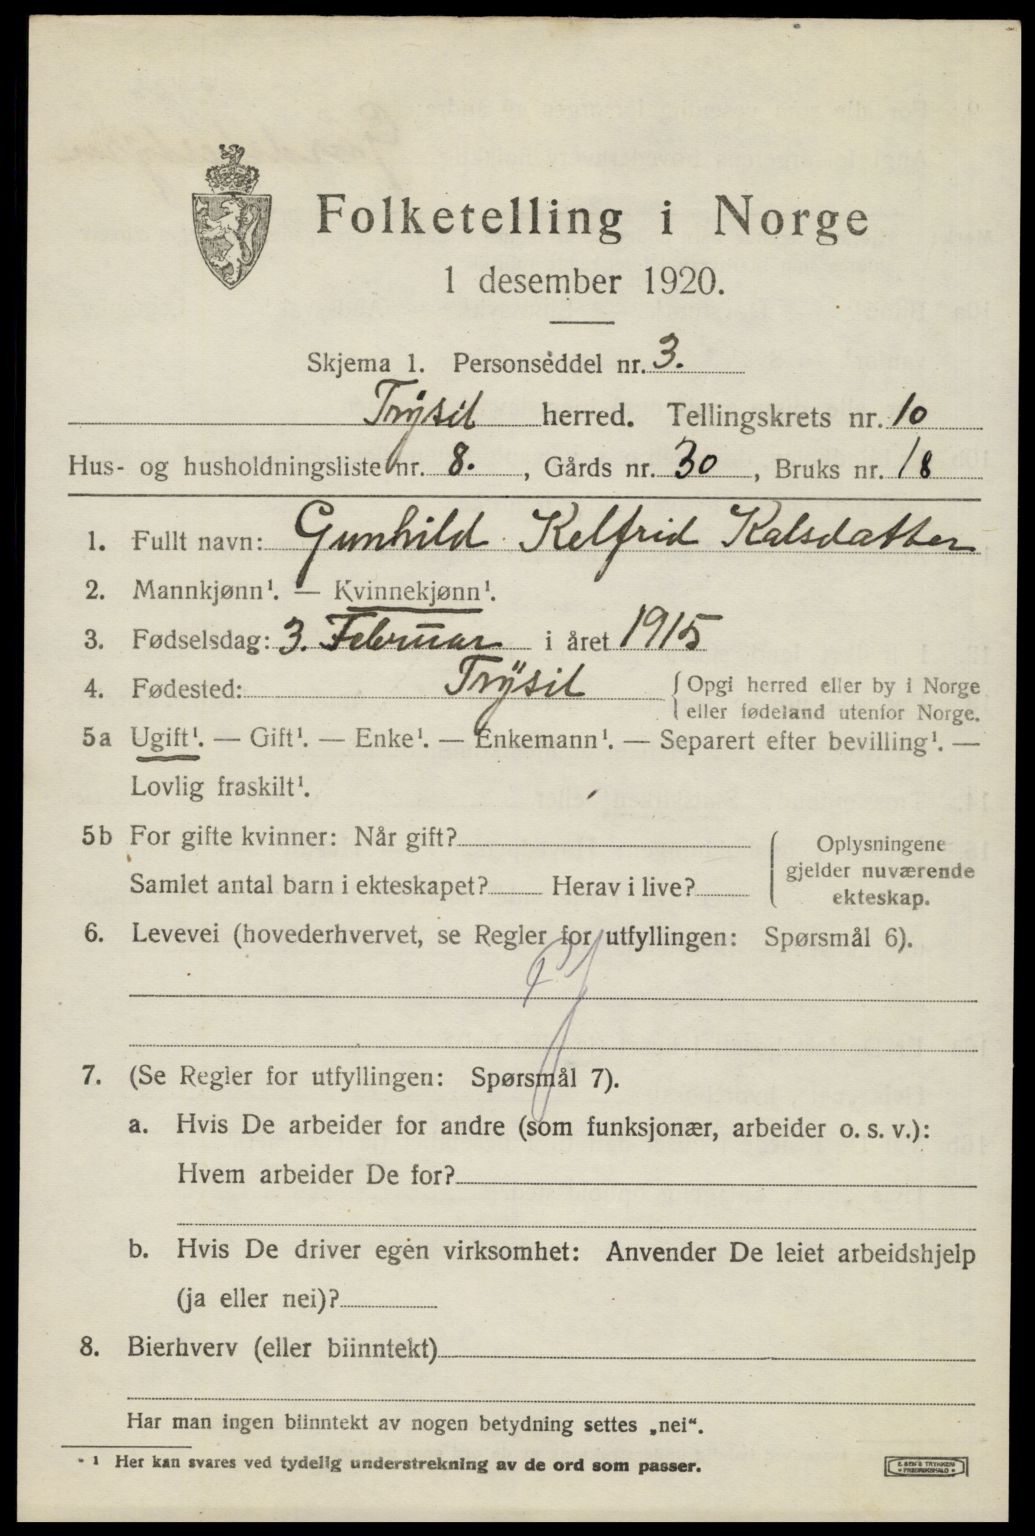 Folketelling i Norge
1 desember 1920.
Skjema 1. Personseddel nr. 3.
Trysil herred. Tellingskrets nr. 10
Hus- og husholdningsliste nr. 8. , Gårds nr. 30 , Bruks nr. 18
1. Fullt navn: Gunhild Kelfrid Kalsdatter
2. Mannkjønn¹. — Kvinnekjønn¹.
3. Fødselsdag: 3. Februar i året 1915
4. Fødested: Trysil { Opgi herred eller by i Norge
eller fødeland utenfor Norge.
5a Ugift¹. — Gift¹. — Enke¹. — Enkemann¹. — Separert efter bevilling¹. —
Lovlig fraskilt¹.
5b For gifte kvinner: Når gift?
Samlet antal barn i ekteskapet? Herav i live?
Oplysningene
gjelder nuværende
ekteskap.
6. Levevei (hovederhvervet, se Regler for utfyllingen: Spørsmål 6).
7. (Se Regler for utfyllingen: Spørsmål 7).
a. Hvis De arbeider for andre (som funksjonær, arbeider o. s. v.):
Hvem arbeider De for?
b. Hvis De driver egen virksomhet: Anvender De leiet arbeidshjelp
(ja eller nei)?
8. Bierhverv (eller biinntekt)
Har man ingen biinntekt av nogen betydning settes „nei“.
¹ Her kan svares ved tydelig understrekning av de ord som passer.